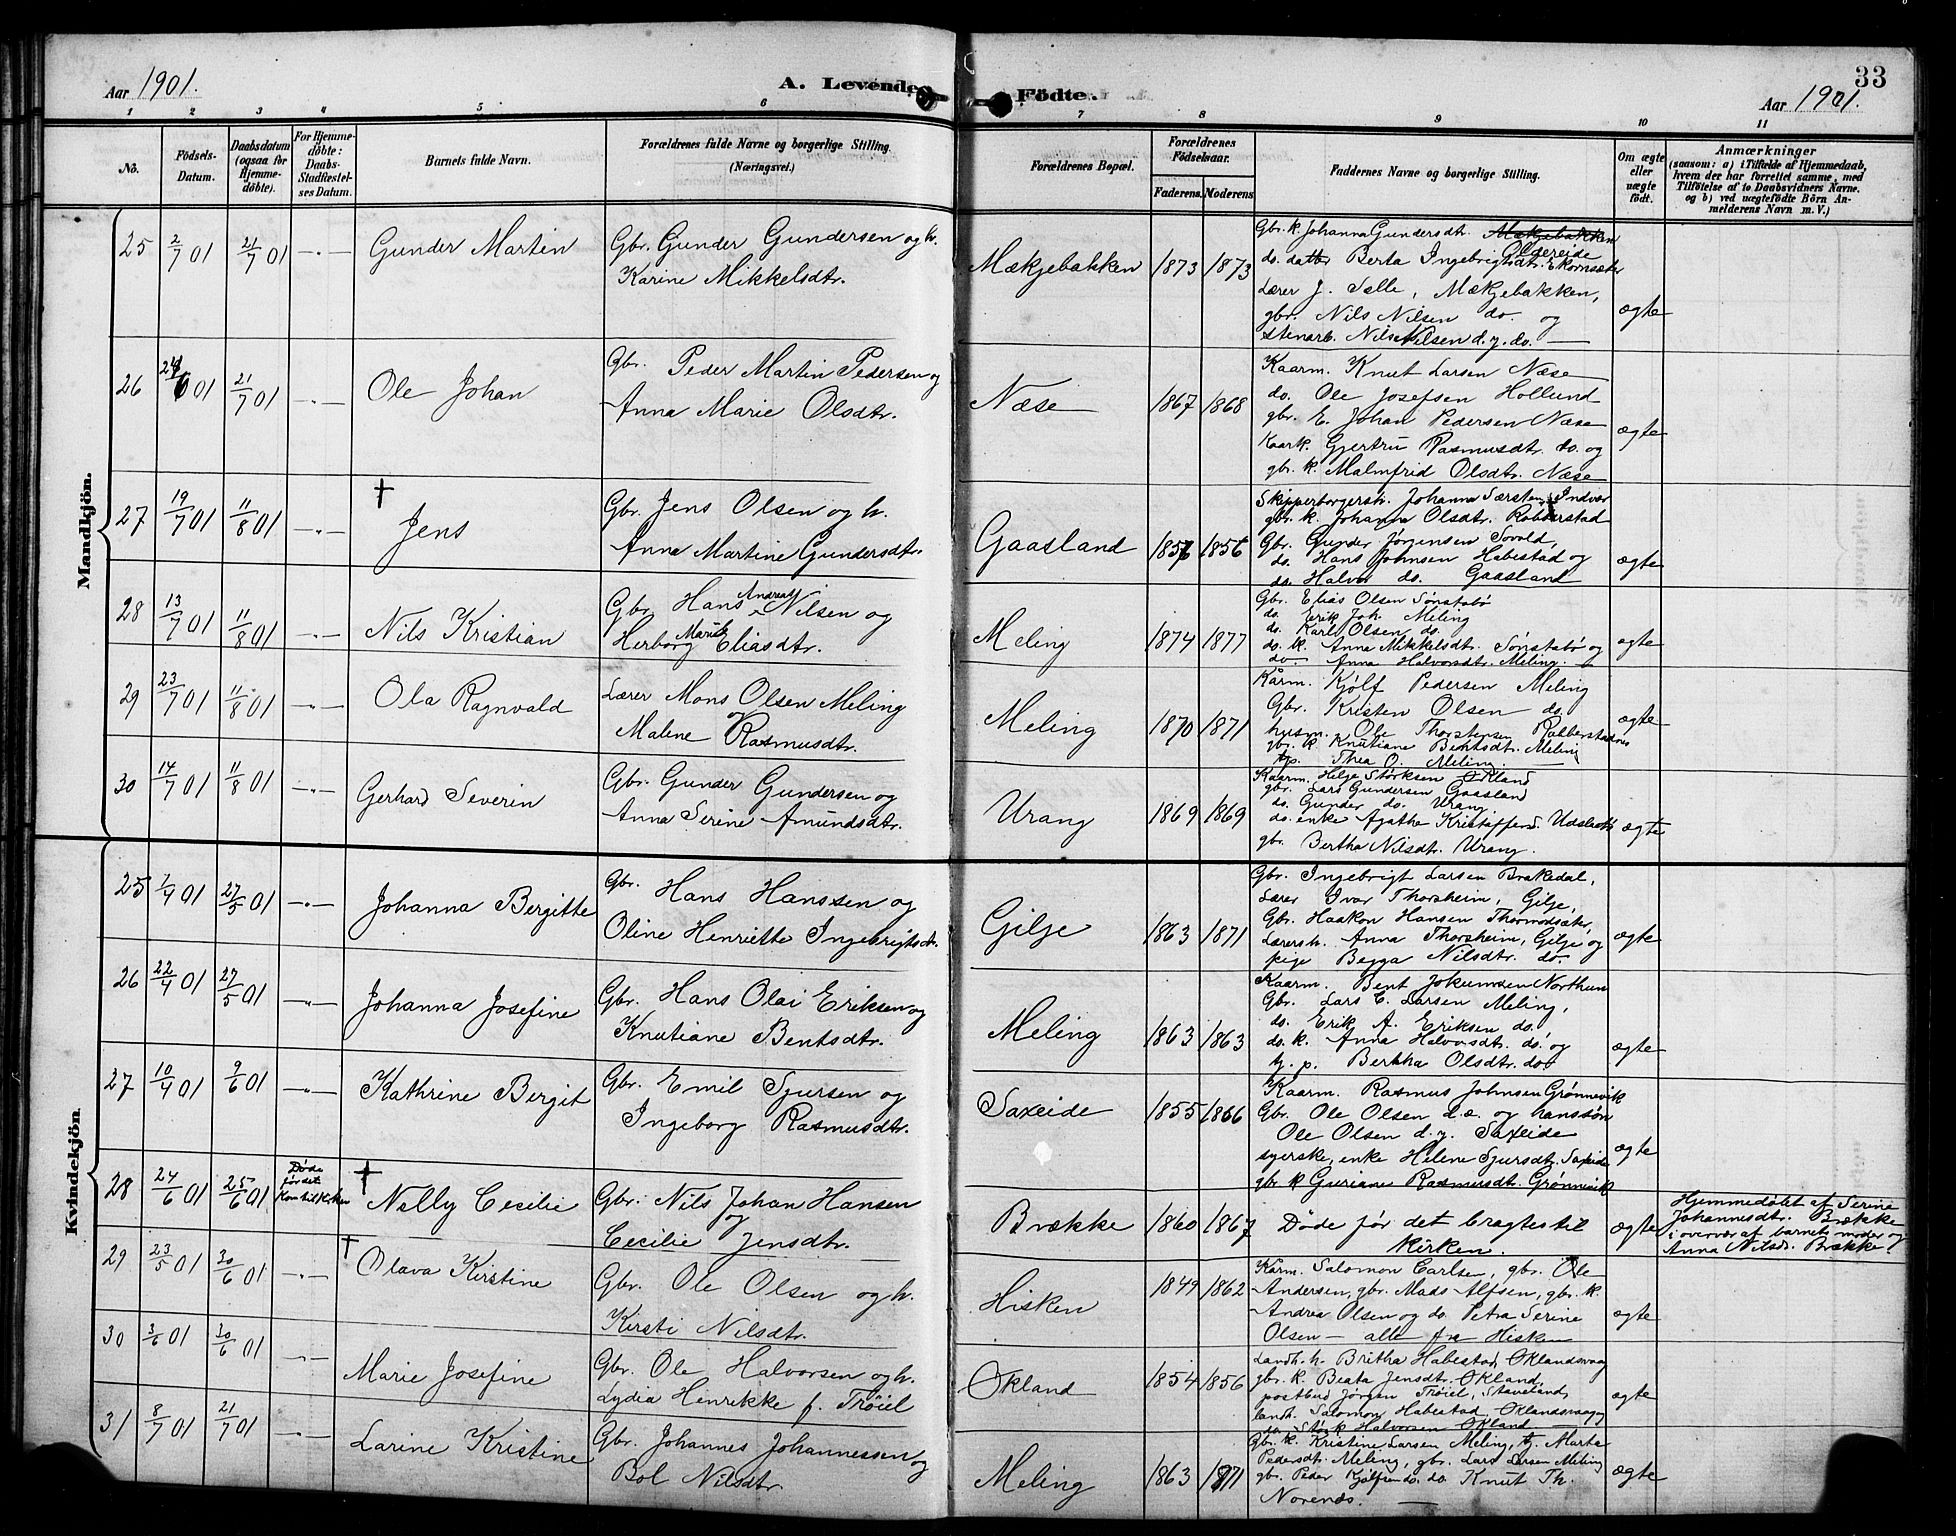 33
Aar 1901.
A. Levende Fødte.
Aar 1901.
1 2 3 4 5 6 7 8 9 10 11
No.
Fødsels-Datum.
Daabsdatum (ogsaa for Hjemmedøbte).
For Hjemmedøbte: Daabs-Stadfæstelses Datum.
Barnets fulde Navn.
Forældrenes fulde Navne og borgerlige Stilling. (Næringsvei.)
Forældrenes Bopæl.
Forældrenes Fødselsaar.
Faderens. Moderens
Faddernes Navne og borgerlige Stilling.
Om ægte eller uægte født.
Anmærkninger
(saasom: a) i Tilfælde af Hjemmedaab, hvem der har forrettet samme, med Tilføielse af to Daabsvidners Navne. og b) ved uægtefødte Børn Anmelderens Navn m. V.)
Mandkjøn.
25 2/7 01 21/7 01 -"- Gunder Martin
Gbr. Gunder Gundersen og h.
Karine Mikkelsdtr.
Mækjebakken 1873 1873
Gbr. k. Johanna Gundersdtr. Mækjebakken
do. datter Berta Ingebrigtsdtr. Ekornsæter
Lærer J. Sælle, Mækjebakken,
gbr. Nils Nilsen do. og
stenarb. Nils Nilsen d. y. do.
ægte
26 6 01 21/7 01 -"- Ole Johan
Gbr. Peder Martin Pedersen og
Anna Marie Olsdtr.
Næse 1867 1868
Kaarm. Knut Larsen Næse
do. Ole Josefsen Hollund
gbr. E. Johan Pedersen Næse
Kaark. Gjertru Rasmusdtr. do. og
gbr. k. Malmfrid Olsdtr. Næse
ægte
27 19/7 01 11/8 01 -"- † Jens
Gbr. Jens Olsen og h.
Anna Martine Gundersdtr.
Gaasland 1856 1856
Skipperborgersk. Johanna Særsten, Indvær
gbr. k. Johanna Olsdtr. Robberstad
Gbr. Gunder Jørgensen Sovold,
do. Hans Johnsen Habestad og
do. Halvor do. Gaasland
ægte
28 13/7 01 11/8 01 -"- Nils Kristian
Gbr. Hans Andreas Nilsen og
Herborg Marie Eliasdtr.
Meling 1874 1877
Gbr. Elias Olsen Sønstabø
do. Erik Joh. Meling
do. Karl Olsen do.
do. k. Anna Mikkelsdtr. Sønstabø og
do. Anna Halvorsdtr. Meling.
ægte
29 23/7 01 11/8 01 -"- Ola Ragnvald
Lærer Mons Olsen Meling
og
Malene Rasmusdtr.
Meling 1870 1871
Kårm. Kjølf Pedersen Meling
Gbr. Kristen Olsen do.
husm. Ole Thorstensen
gbr. k. Knutiane Bentsdtr. Meling
tjp. Thea O. Meling.
ægte
30 14/7 01 11/8 01 -"- Gerhard Severin
Gbr. Gunder Gundersen og
Anna Serine Amundsdtr.
Urang 1869 1869
Kaarm. Helge Størksen Økland
gbr. Lars Gundersen Gaasland
do. Gunder do. Urang.
do. enke Agathe
gbr. Bertha Nilsdtr. Urang.
ægte
Kvindekjön.
25 7/4 01 27/5 01 -"- Johanna Bergitte
Gbr. Hans Hanssen og
Oline Henriette Ingebrigtsdtr.
Gilje 1863 1871
Gbr. Ingebrigt Larsen Brakedal,
Lærer Ivar Thorsheim, Gilje,
Gbr. Haakon Hansen Thormodsæter,
Lærersk. Anna Thorsheim, Gilje og
pige Begga Nilsdtr. do.
ægte
26 22/4 01 27/5 01 -"- Johanna Josefine
Gbr. Hans Olai Eriksen og
Knutiane Bentsdtr.
Meling 1863 1863
Kaarm. Bent Jokumsen Northun
Gbr. Lars E. Larsen Meling,
do. Erik A. Eriksen do.
do. k. Anna Halvorsdtr. do. og
tj. p. Bertha Olsdtr. do
ægte
27 10/4 01 9/6 01 -"- Kathrine Bergit
Gbr. Emil Sjursen og
Ingeborg Rasmusdtr.
Saxeide 1855 1866
Kaarm. Rasmus Johnsen Grønnevik
Gbr. Ole Olsen d. e. og hanssøn
Ole Olsen d. y. Saxeide
syerske, enke Helene Sjursdtr. Saxeide
gbr k Guriane Rasmusdtr. Grønnevik
ægte
28 24/6 01 25/6 01 Døde før det kom til kirken † Nelly Cecilie
Gbr. Nils Johan Hansen
og
Cecilie Jensdtr.
Brække 1860 1867
Døde før det bragtes til
kirken.
ægte
Hjemmedøbt af Serine
Johannesdtr. Brække
i overvær af barnets moder og
Anna Nilsdr. Brække.
29 23/5 01 30/6 01 -"- † Olava Kirstine
Gbr. Ole Olsen og h.
Kirsti Nilsdtr.
Hisken 1849 1862
Kårm. Salomon Carlsen, gbr. Ole
Andersen, gbr. Mads Alfsen, gbr. k.
Andrea Olsen og do. Petra Serine
Olsen — alle fra Hisken
ægte
30 3/6 01 30/6 01 -"- Marie Josefine
Gbr. Ole Halvorsen og h.
Lydia Henrikke f. Trøiel
Økland 1854 1856
Landh. h. Britha Habestad, Øklandsvaag
gbr. k. Beata Jensdtr. Økland,
postbud Jørgen Trøiel, Staveland,
landh. Salomon Habestad Øklandsvaag
do. Størk Halvorsen Økland
ægte
31 8/7 01 21/7 01 -"- Larine Kristine
Gbr. Johannes Johannessen og
Bol Nilsdtr.
Meling 1863 1871
Gbr. k. Kristine Larsen Meling, tj. Marta
Pedersdt. Meling, gbr. Lars Larsen Meling
gbr. Peder Kjølfsen do. do Knut Th.
Norends.
ægte